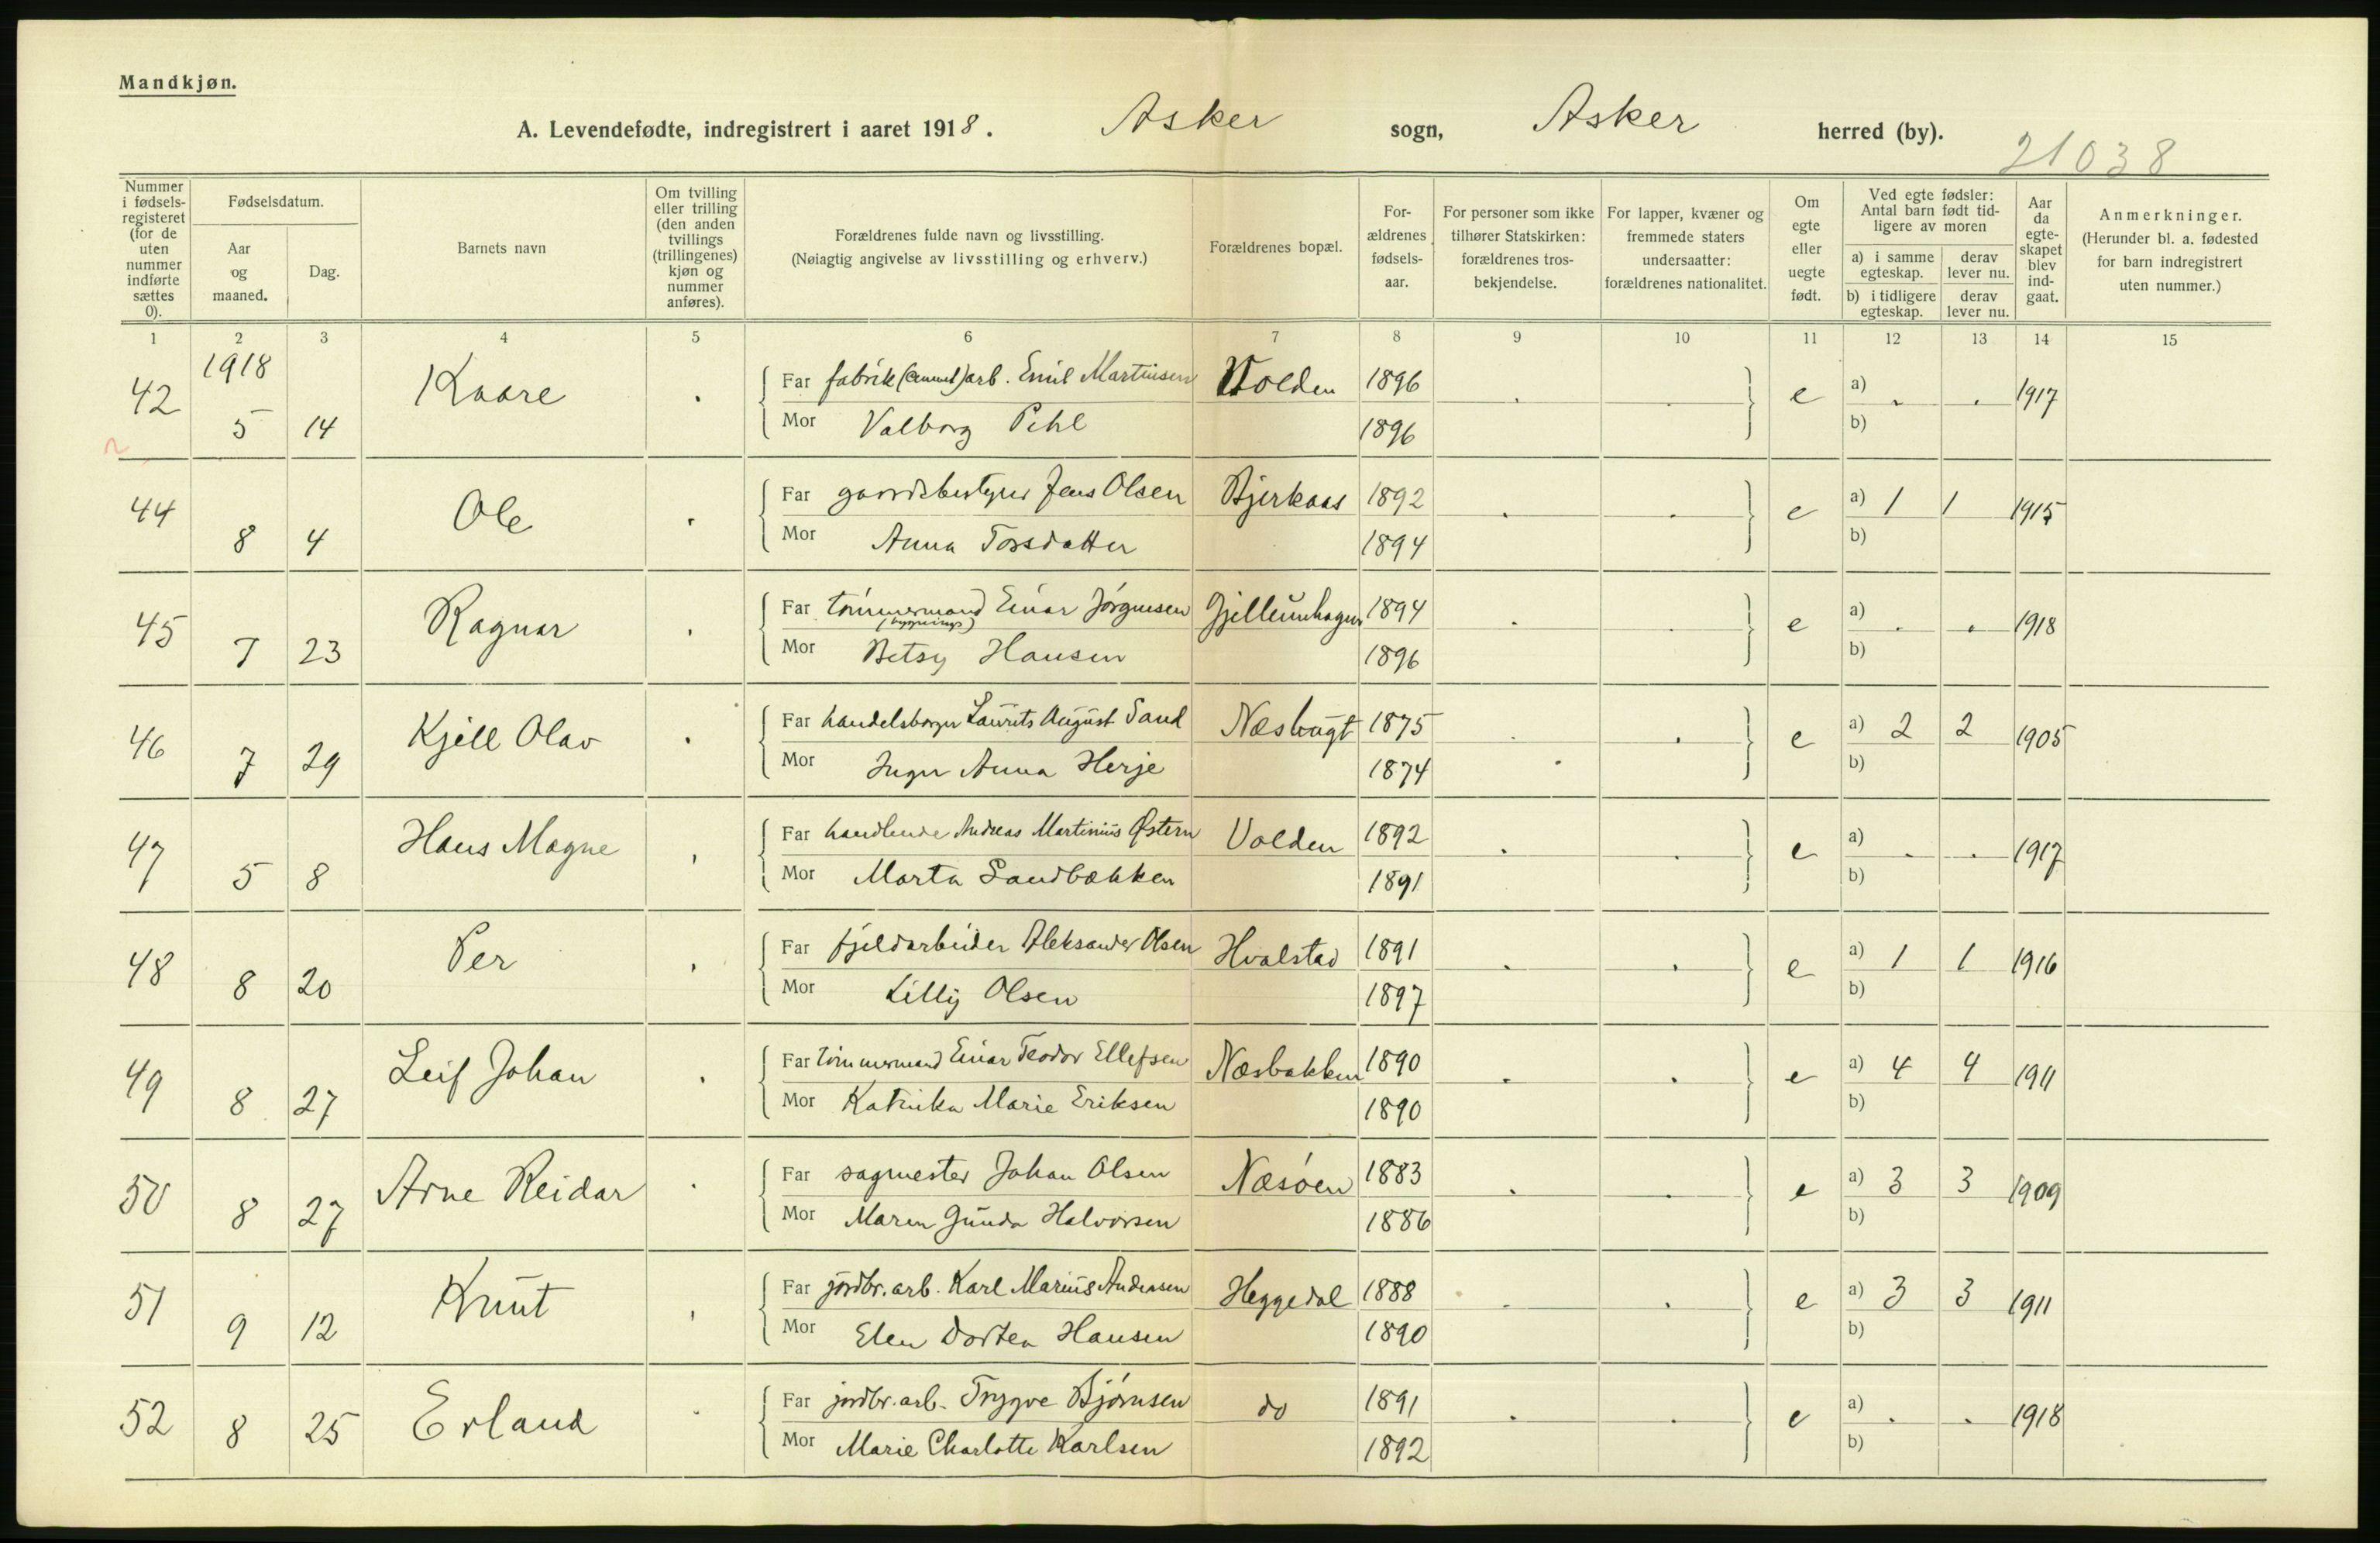 Mandkjøn.
A. Levendefødte, indregistrert i aaret 1918. Asker sogn, Asker herred (by).
21038
Nummer i fødsels-registeret (for de uten nummer indførte sættes 0).
Fødselsdatum.
Aar og maaned.
Dag.
Barnets navn
Om tvilling eller trilling (den anden tvillings (trillingenes) kjøn og nummer anføres).
Forældrenes fulde navn og livsstilling.
(Nøiagtig angivelse av livsstilling og erhverv.)
Forældrenes bopæl.
For-ældrenes fødsels-aar.
For personer som ikke tilhører Statskirken: forældrenes tros-bekjendelse.
For lapper, kvæner og fremmede staters undersaatter: forældrenes nationalitet.
Om egte eller uegte født.
Ved egte fødsler: Antal barn født tid-ligere av moren
a) i samme egteskap. derav lever nu.
b) i tidligere egteskap. derav lever nu.
Aar da egte-skapet blev ind-gaat.
Anmerkninger.
(Herunder bl. a. fødested for barn indregistrert uten nummer.)
1 2 3 4 5 6 7 8 9 10 11 12 13 14 15
1918
42 5 14 Kaare Far fabrik (cement) arb. Emil Martinsen Volden 1896 e a) . . 1917
Mor Valborg Pihl 1896 b)
44 8 4 Ole Far gaardsbestyrer Jens Olsen Bjerkaas 1892 e a) 1 1 1915
Mor Anna Torsdatter 1894 b)
45 7 23 Ragnar Far tømmermand (bygnings) Einar Jørgensen Gjellumhagen 1894 e a) . . 1918
Mor Betsy Hansen 1896 b)
46 7 29 Kjell Olav Far handelsborger Laurits August Sand Næsbugt 1875 e a) 2 2 1905
Mor Inger Anna Herje 1874 b)
47 5 8 Hans Magne Far handlende Andreas Martinius Østern Volden 1892 e a) . . 1917
Mor Marta Sandbækken 1891 b)
48 8 20 Per Far fjeldarbeider Aleksander Olsen Hvalstad 1891 e a) 1 1 1916
Mor Lilly Olsen 1897 b)
49 8 27 Leif Johan Far tømmermand Einar Teodor Ellefsen Næsbakken 1890 e a) 4 4 1911
Mor Katinka Marie Eriksen 1890 b)
50 8 27 Arne Reidar Far sagmester Johan Olsen Næsøen 1883 e a) 3 3 1909
Mor Maren Gunda Halvorsen 1886 b)
51 9 12 Knut Far jordbr. arb. Karl Marius Andersen Heggedal 1888 e a) 3 3 1911
Mor Elen Dortea Hansen 1890 b)
52 8 25 Erland Far jordbr. arb. Trygve Bjørnsen do 1891 e a) . . 1918
Mor Marie Charlotte Karlsen 1892 b)